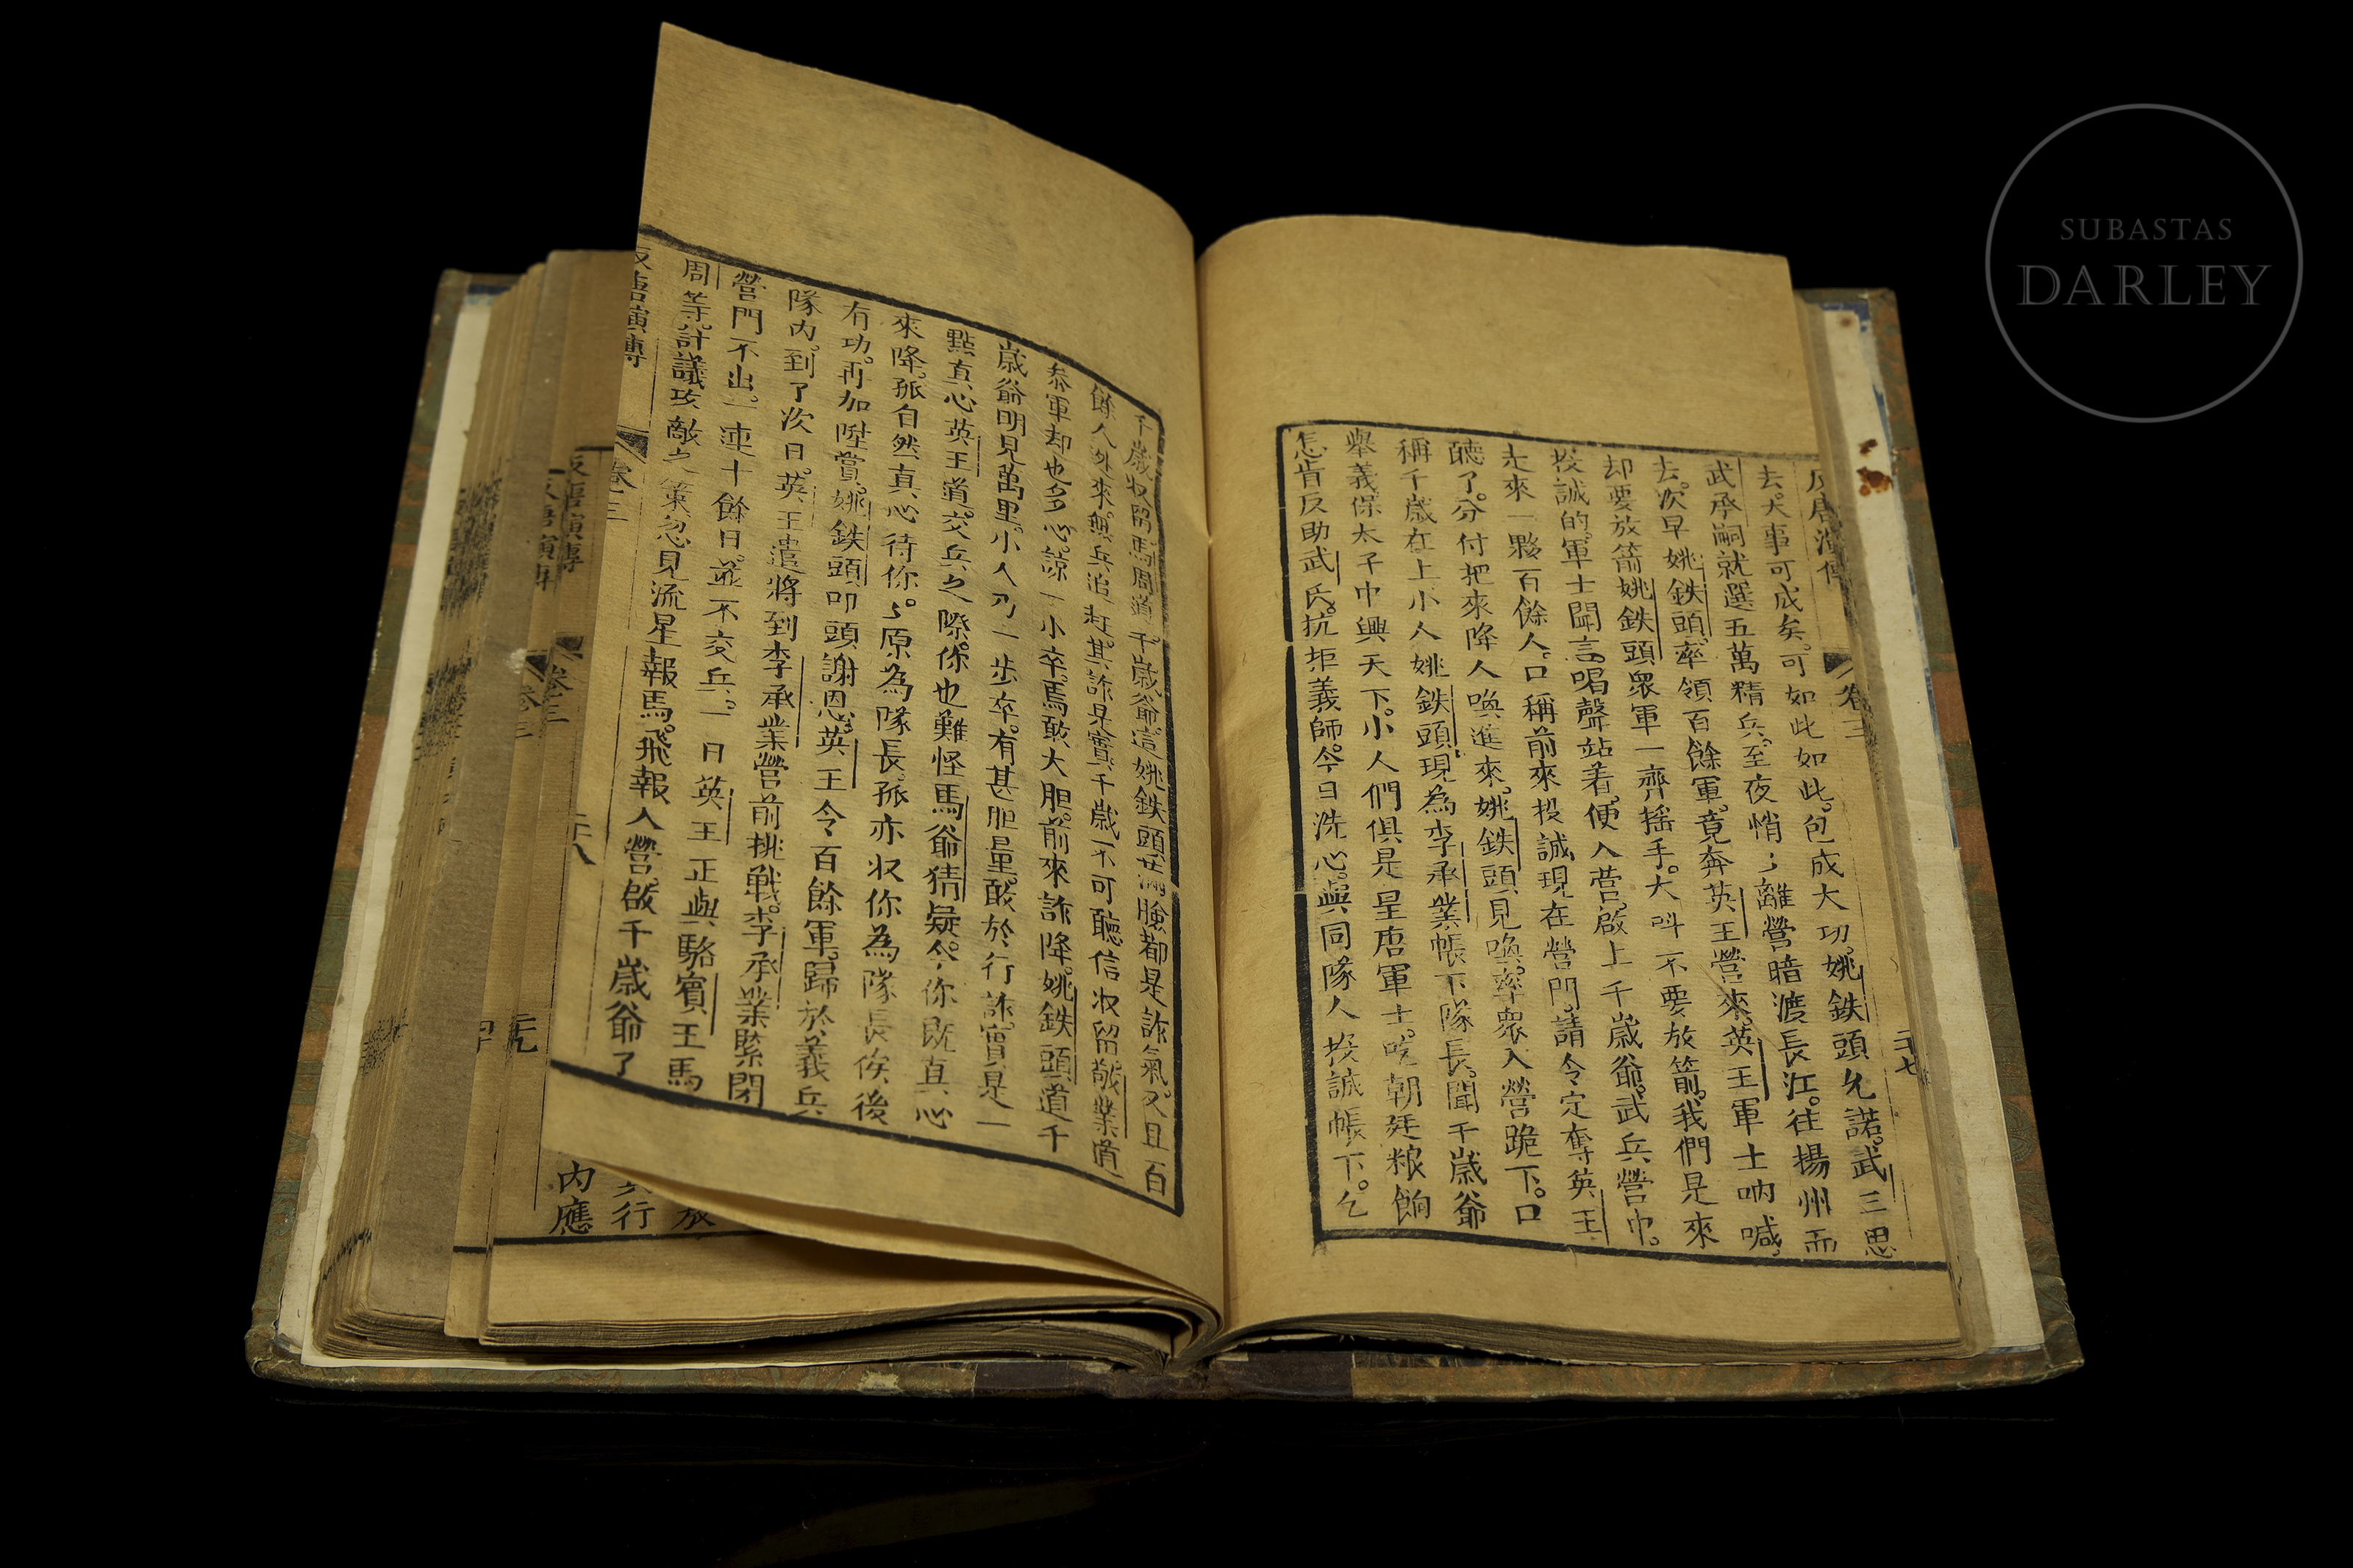 反唐演傳
卷三
二十七
去。大事可成矣。可如此如此。包成大功。姚鉄頭允諾。武三思
武承嗣就選五萬精兵。至夜悄〻離營暗渡長江。往揚州而
去。次早姚鉄頭率領百餘軍。竟奔英王營來。英王軍士吶喊。
却要放箭。姚鉄頭眾軍一齊搖手。大叫不要放箭。我們是來
投誠的。軍士聞言。唱聲站着。便入營。啟上千歲爺。武兵營中。
走來一夥百餘人。口稱前來投誠。現在營門。請令定奪。英王
聽了。分付把來降人喚進來。姚鉄頭見喚。率眾入營跪下。口
稱千歲在上。小人姚鉄頭。現為李承業帳下隊長。聞千歲爺
舉義。保太子中興天下。小人們俱是皇唐軍士。吃朝廷粮餉
怎肯反助武氏。抗拒義師。今日洗心。與同隊人投誠帳下。乞
千歲収留。馬周道。千歲爺。這姚鉄頭滿臉都是詐氣。又且百
餘人外來。無兵追赶。其詐是實。千歲不可聽信収留。敬業道
參軍却也多心。諒一小卒。焉敢大胆。前來詐降。姚鉄頭道。千
歲爺明見萬里。小人乃一步卒。有甚胆量。敢於行詐。實是一
點真心。英王道。交兵之際。你也難怪馬爺猜疑。今你既真心
來降。孤自然真心待你。〻原為隊長。孤亦収你為隊長。俟後
有功。再加陞賞。姚鉄頭叩頭謝恩。英王令百餘軍。歸於義兵
隊內。到了次日。英王遣將到李承業營前挑戰。李承業緊閉
營門不出。一連十餘日。並不交兵。一日英王正與駱賓王馬
周等計議攻敵之策。忽見流星報馬。飛報入營。啟千歲爺了
反唐演傳
卷三
反唐演傳
卷三
卷三
內應
行